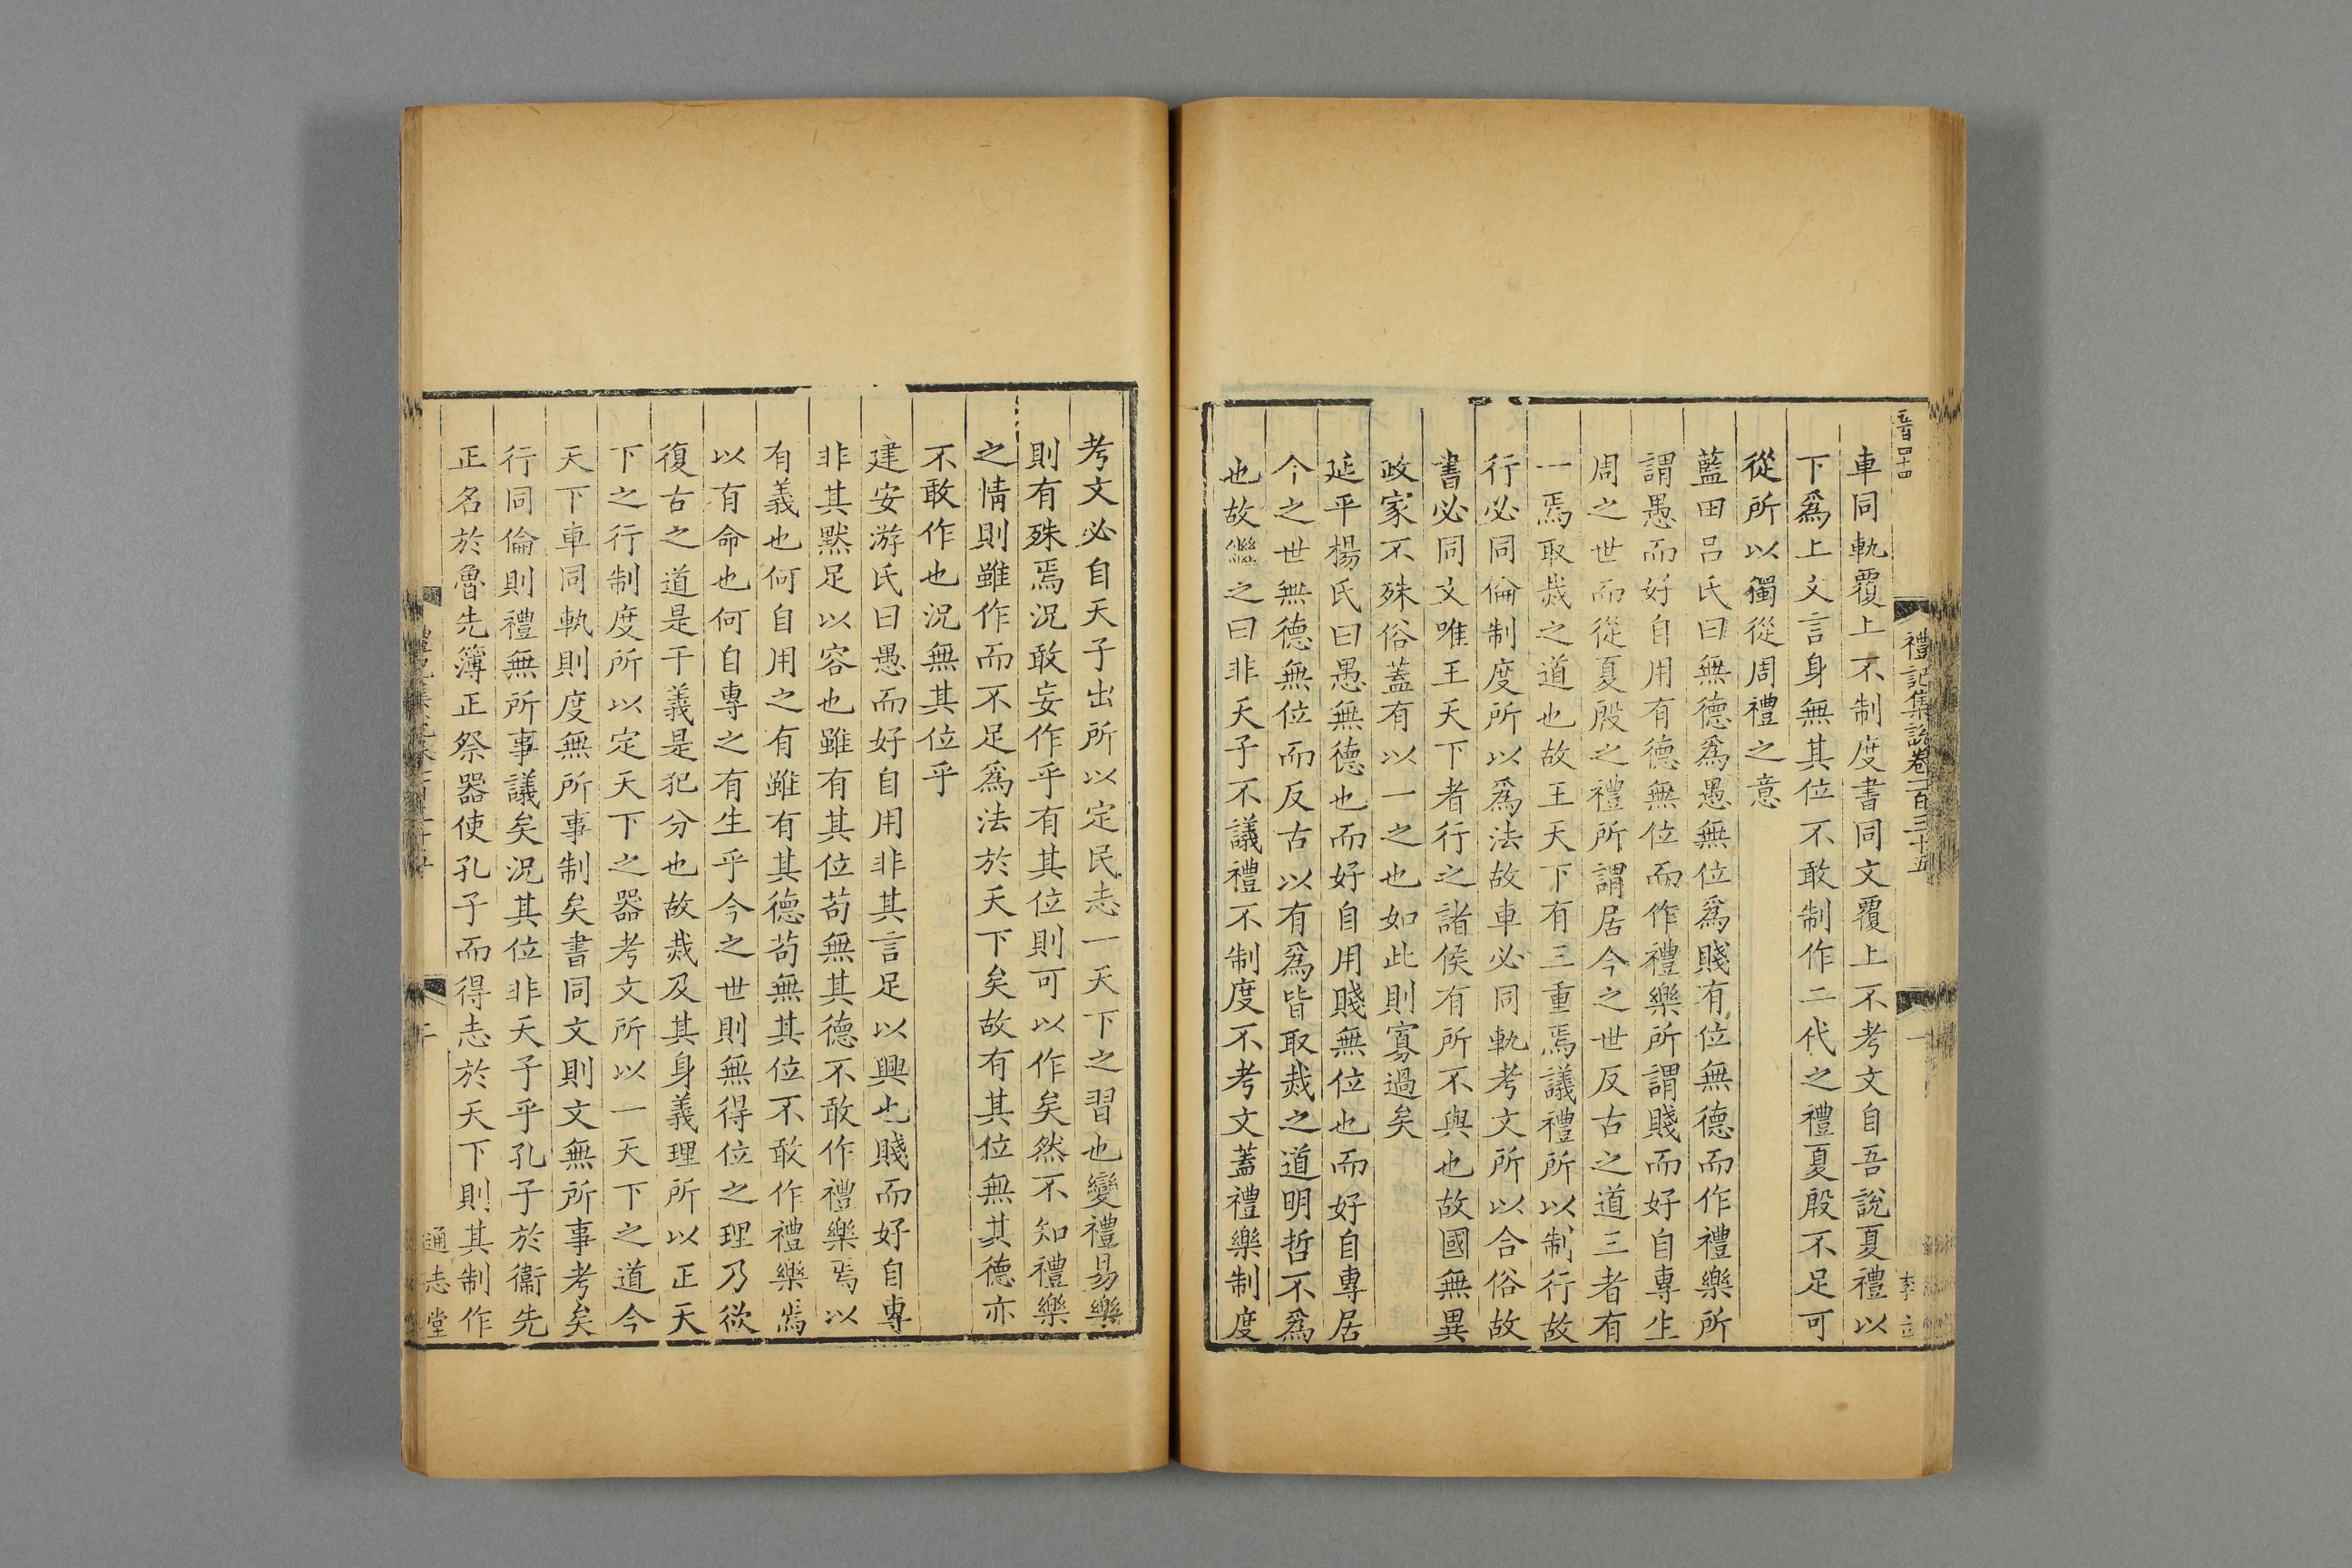 禮記集說卷一百三十五
車同軌覆上不制度書同文覆上不考文自吾說夏禮以
下爲上文言身無其位不敢制作二代之禮夏殷不足可
從所以獨從周禮之意
藍田吕氏曰無德爲愚無位爲賤有位無德而作禮樂所
謂愚而好自用有德無位而作禮樂所謂賤而好自專生
周之世而從夏殷之禮所謂居今之世反古之道三者有
一焉取烖之道也故王天下有三重焉議禮所以制行故
行必同倫制度所以爲法故車必同軌考文所以合俗故
書必同文唯王天下者行之諸侯有所不與也故國無異
政家不殊俗蓋有以一之也如此則寡過矣
延平楊氏曰愚無德也而好自用賤無位也而好自專居
今之世無德無位而反古以有爲皆取烖之道明哲不爲
也故繼之曰非天子不議禮不制度不考文蓋禮樂制度
考文必自天子出所以定民志一天下之習也變禮易樂
則有殊焉況敢妄作乎有其位則可以作矣然不知禮樂
之情則雖作而不足爲法於天下矣故有其位無其德亦
不敢作也況無其位乎
建安游氏曰愚而好自用非其言足以興也賤而好自專
非其默足以容也雖有其位苟無其德不敢作禮樂焉以
有義也何自用之有雖有其德苟無其位不敢作禮樂焉
以有命也何自專之有生乎今之世則無得位之理乃欲
復古之道是干義是犯分也故烖及其身義理所以正天
下之行制度所以定天下之器考文所以一天下之道今
天下車同軌則度無所事制矣書同文則文無所事考矣
行同倫則禮無所事議矣況其位非天子乎孔子於衞先
正名於魯先簿正祭器使孔子而得志於天下則其制作
通志堂